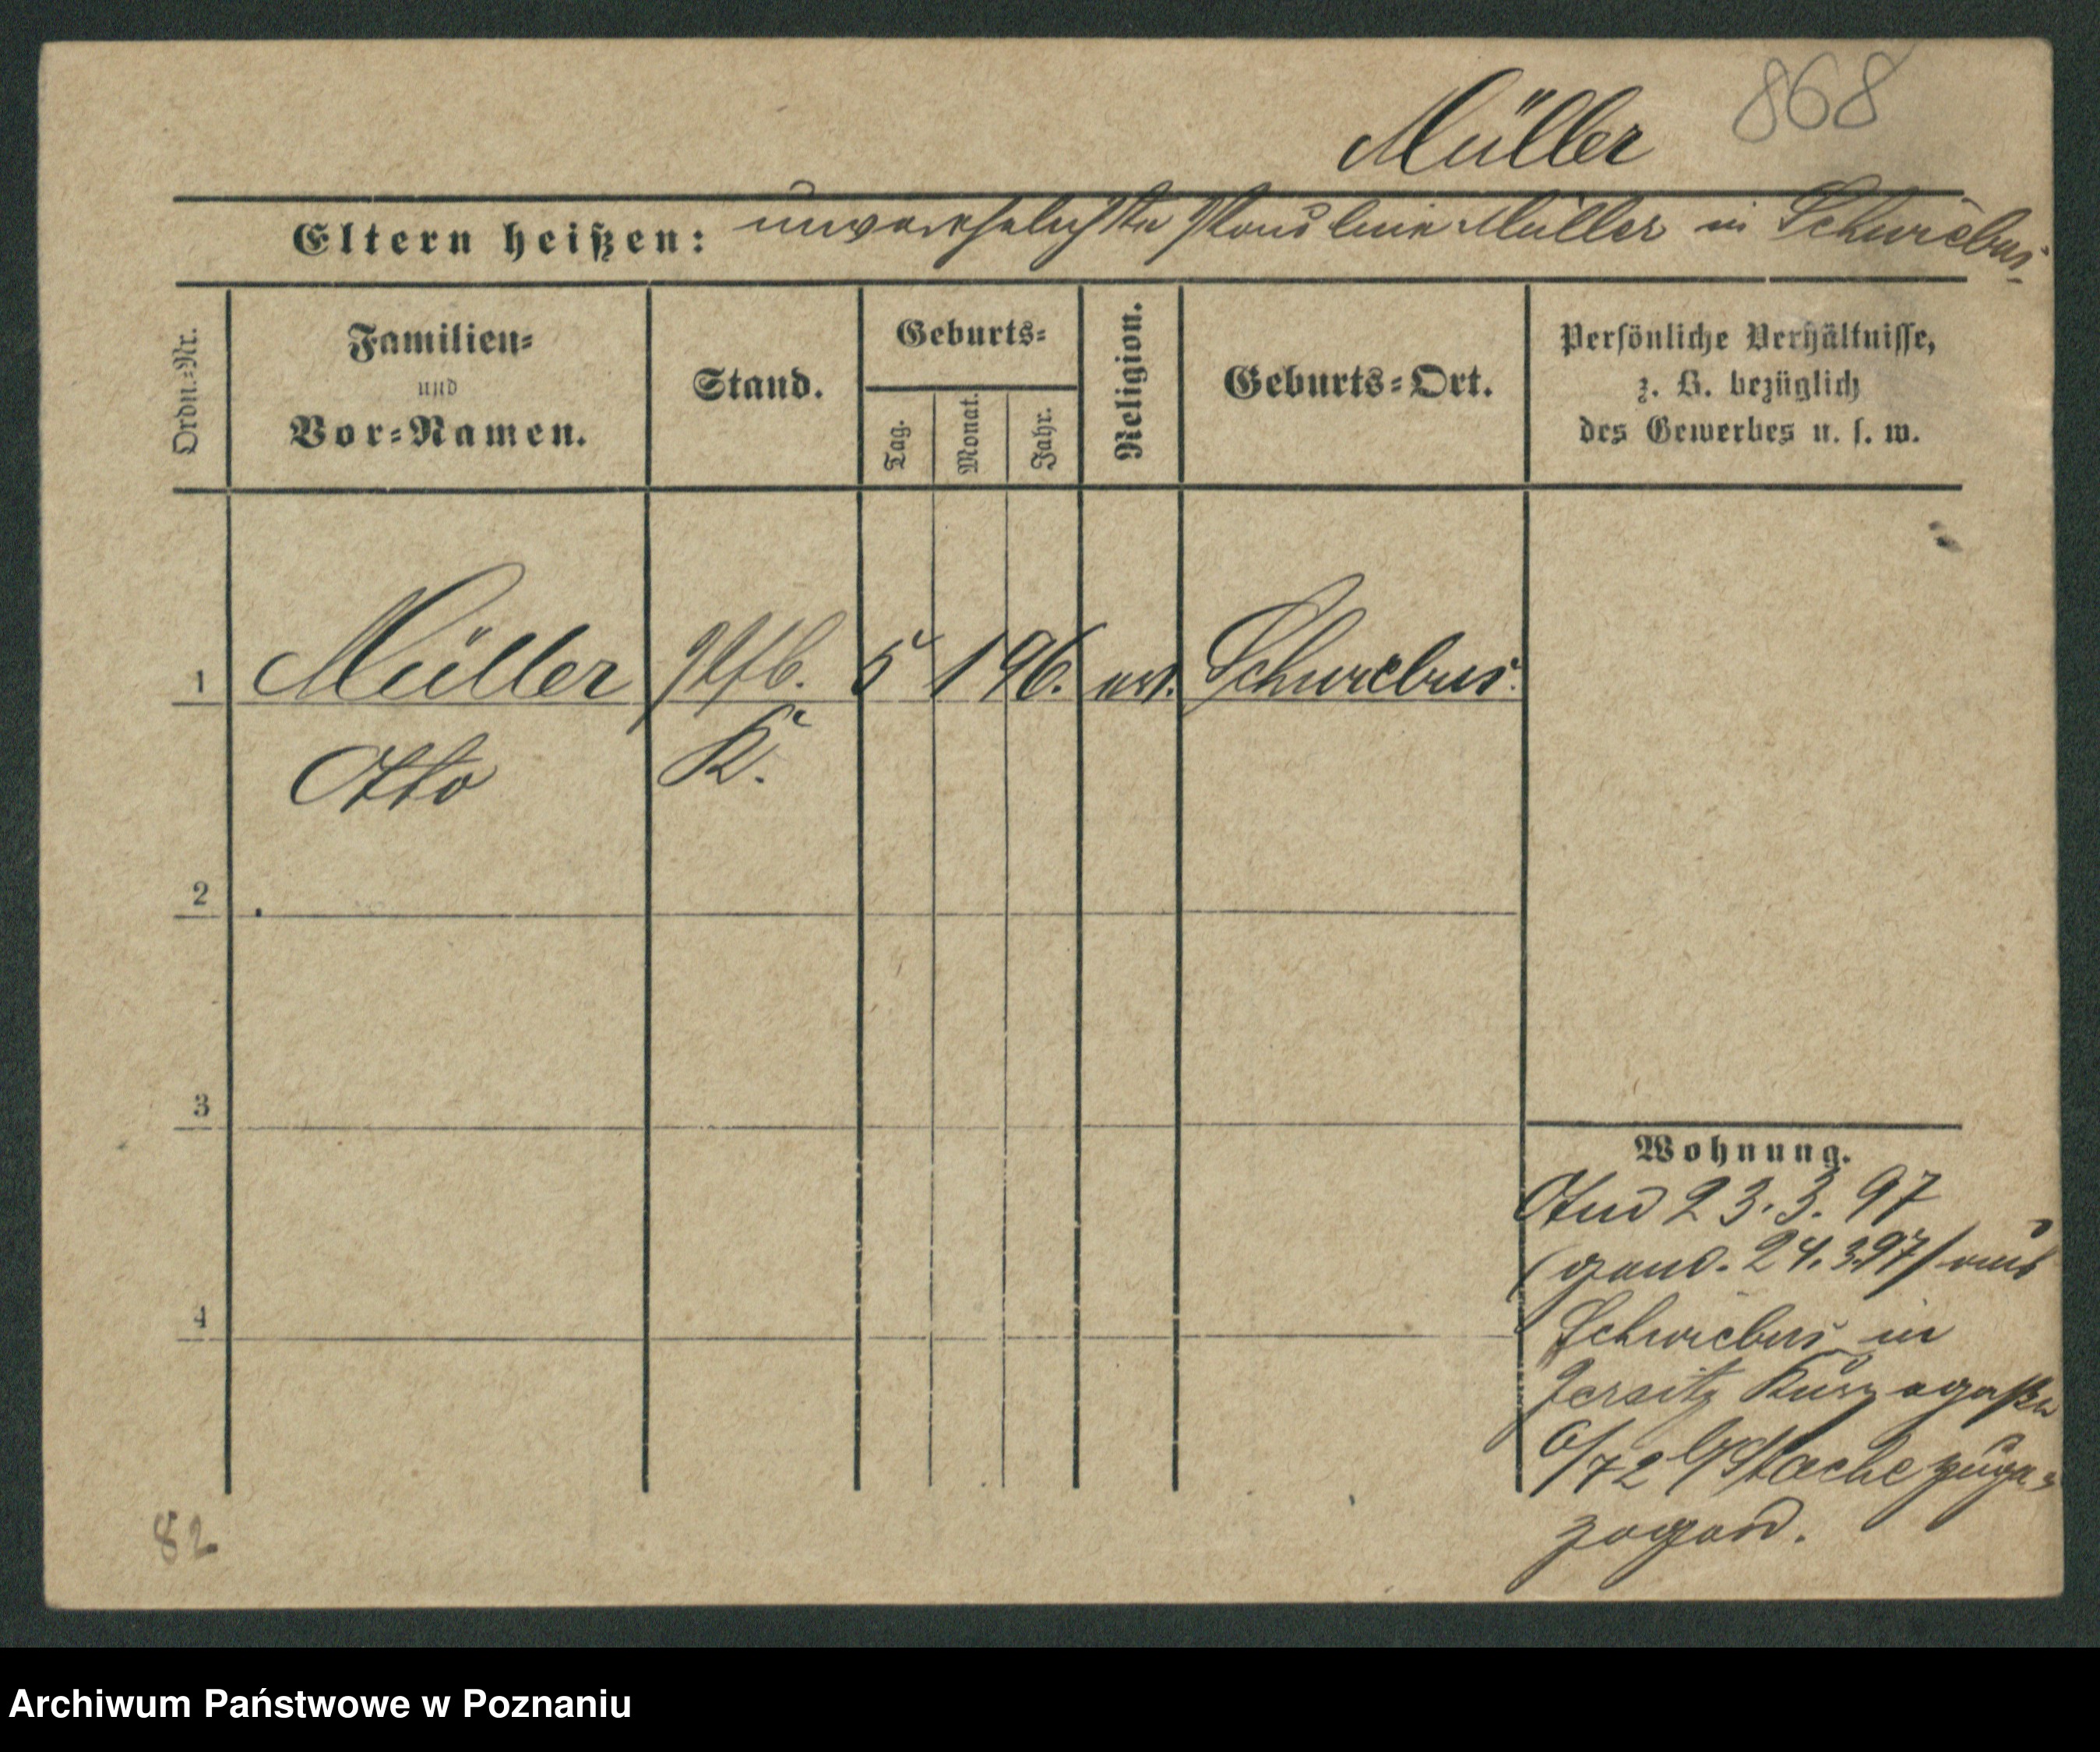 868
Müller
Eltern heißen: unverehelichte Pauline Müller in Schwiebus
Ordn.-Nr.
Familien-
und
Vor-Namen.
Stand.
Geburts-
Tag.
Monat.
Jahr.
Religion.
Geburts-Ort.
Persönliche Verhältnisse,
z. B. bezüglich
des Gewerbes u. s. w.
1 Müller Pfb. 5 1 96. ev. Schwiebus
Otto K.
2
3
4
Wohnung.
23.3.97
24.3.97/ aus
Schwiebus in
Jersitz
6/72 zuge-
zogen.
82
Archiwum Państwowe w Poznaniu